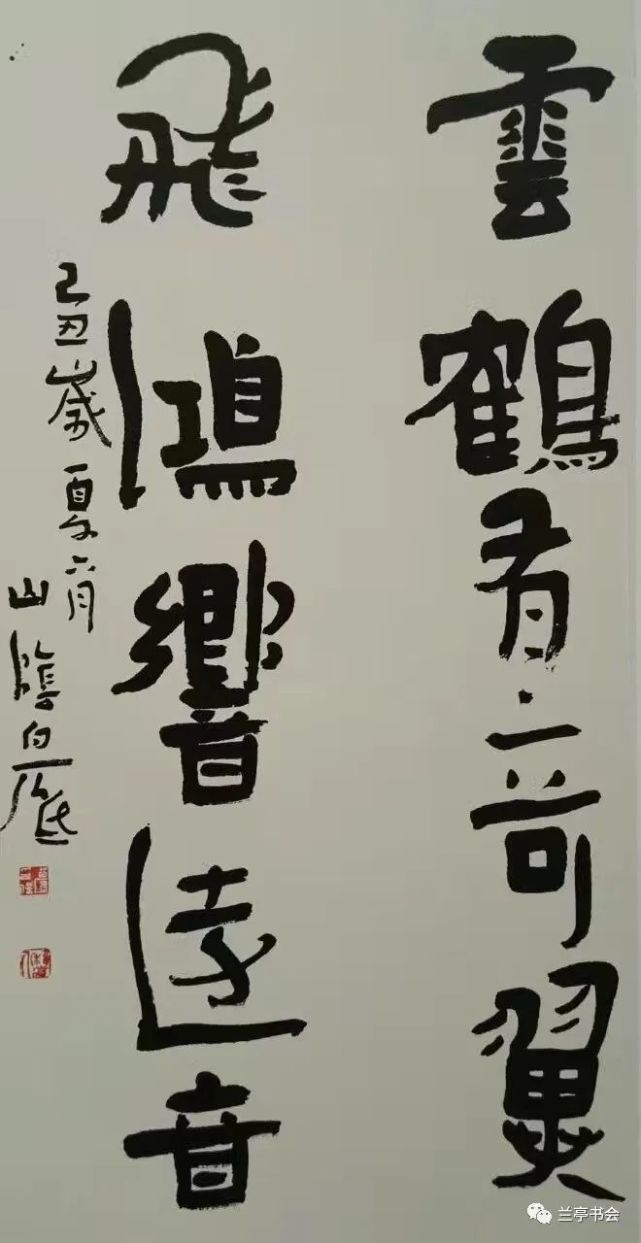 雲鶴有奇翼
飛鴻響遠音
己丑歲夏六月
山陰白砥
兰亭书会